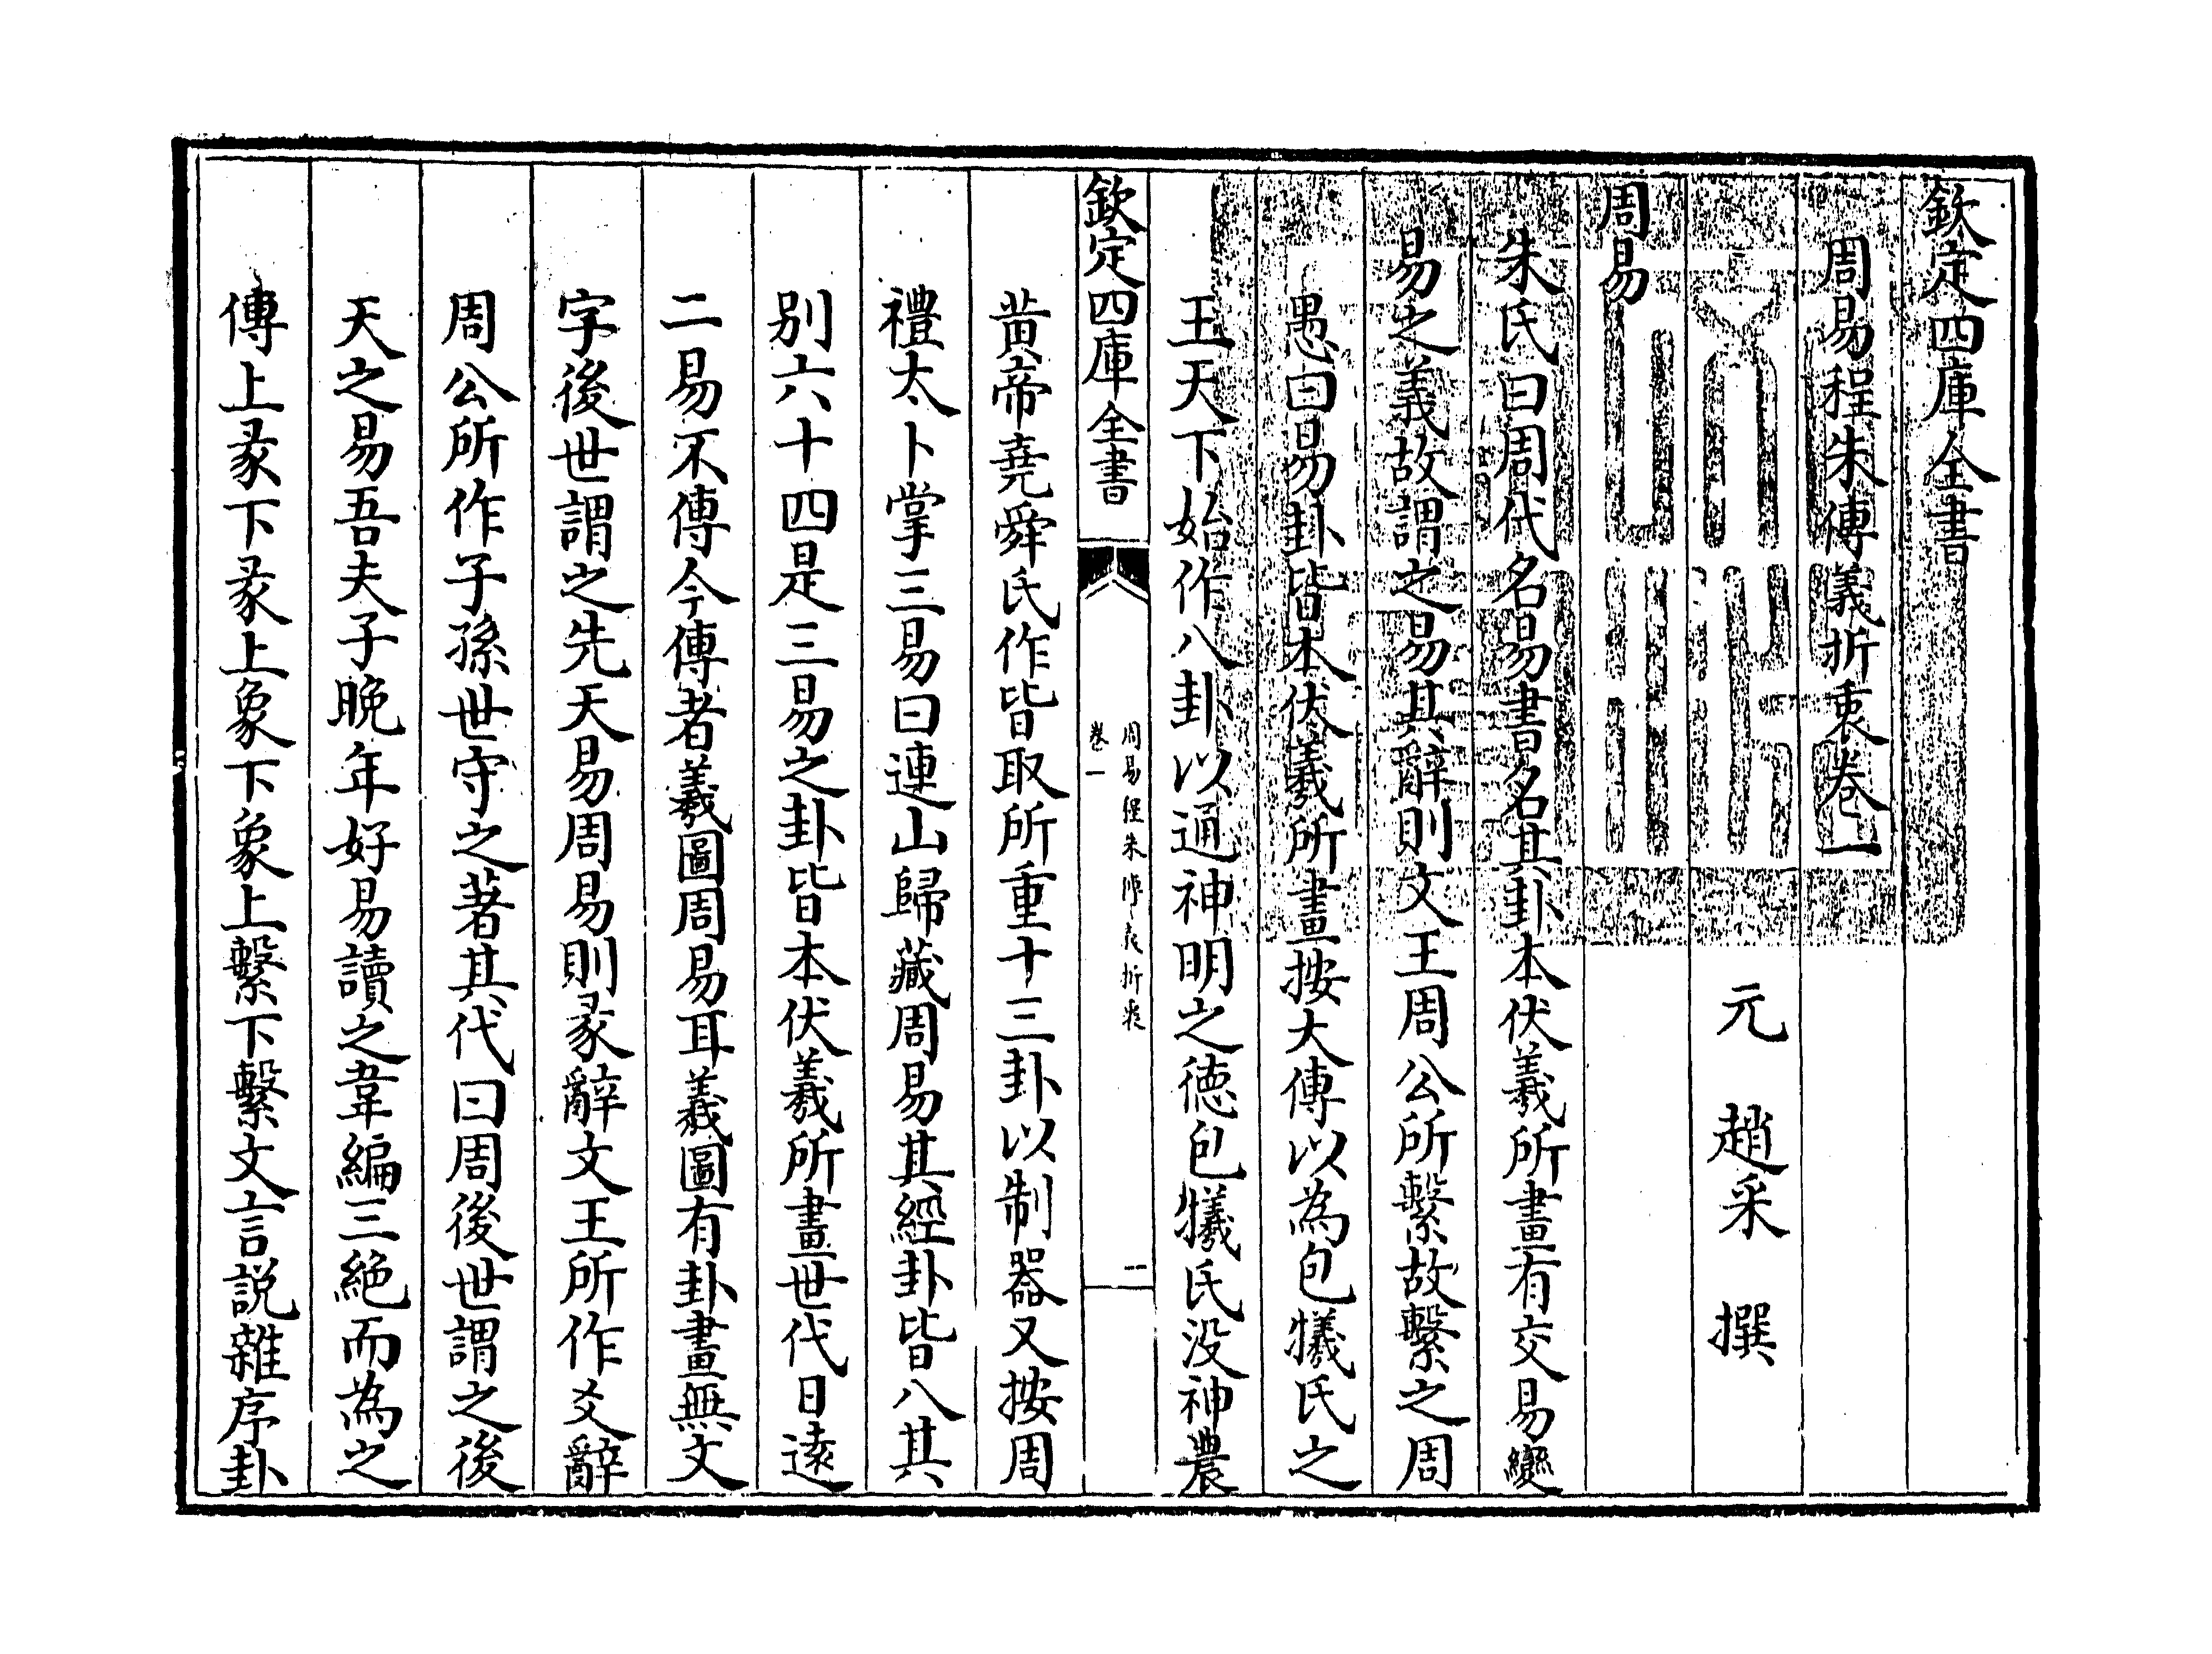 欽定四庫全書
周易程朱傳義折衷卷一
元　趙采　撰
周易
朱氏曰周代名易書名其卦本伏羲所畫有交易變
易之義故謂之易其辭則文王周公所繫故繫之周
愚曰易卦皆本伏羲所畫按大傳以為包犧氏之
王天下始作八卦以通神明之徳包犧氏没神農
欽定四庫全書
周易程朱傳義折衷
卷一
一
黄帝堯舜氏作皆取所重十三卦以制器又按周
禮太卜掌三易曰連山歸藏周易其經卦皆八其
别六十四是三易之卦皆本伏羲所畫世代日遠
二易不傳今傳者羲圖周易耳羲圖有卦畫無文
字後世謂之先天易周易則彖辭文王所作爻辭
周公所作子孫世守之著其代曰周後世謂之後
天之易吾夫子晩年好易讀之韋編三絶而為之
傳上彖下彖上象下象上繫下繫文言説雜序卦